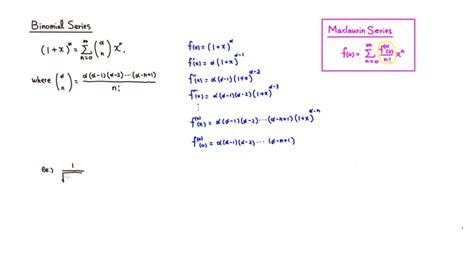 Binomial Series
(1+x)^α = Σ_{n=0}^{∞} (α n) x^n,
where (α n) = α(α-1)(α-2)···(α-n+1) / n!
f(x) = (1+x)^α
f'(x) = α(1+x)^{α-1}
f''(x) = α(α-1)(1+x)^{α-2}
f'''(x) = α(α-1)(α-2)(1+x)^{α-3}
⋮
f^{(n)}(x) = α(α-1)(α-2)···(α-n+1)(1+x)^{α-n}
f^{(n)}(0) = α(α-1)(α-2)···(α-n+1)
Maclaurin Series
f(x) = Σ_{n=0}^{∞} f^{(n)}(0)/n! x^n
ex.) 1/√